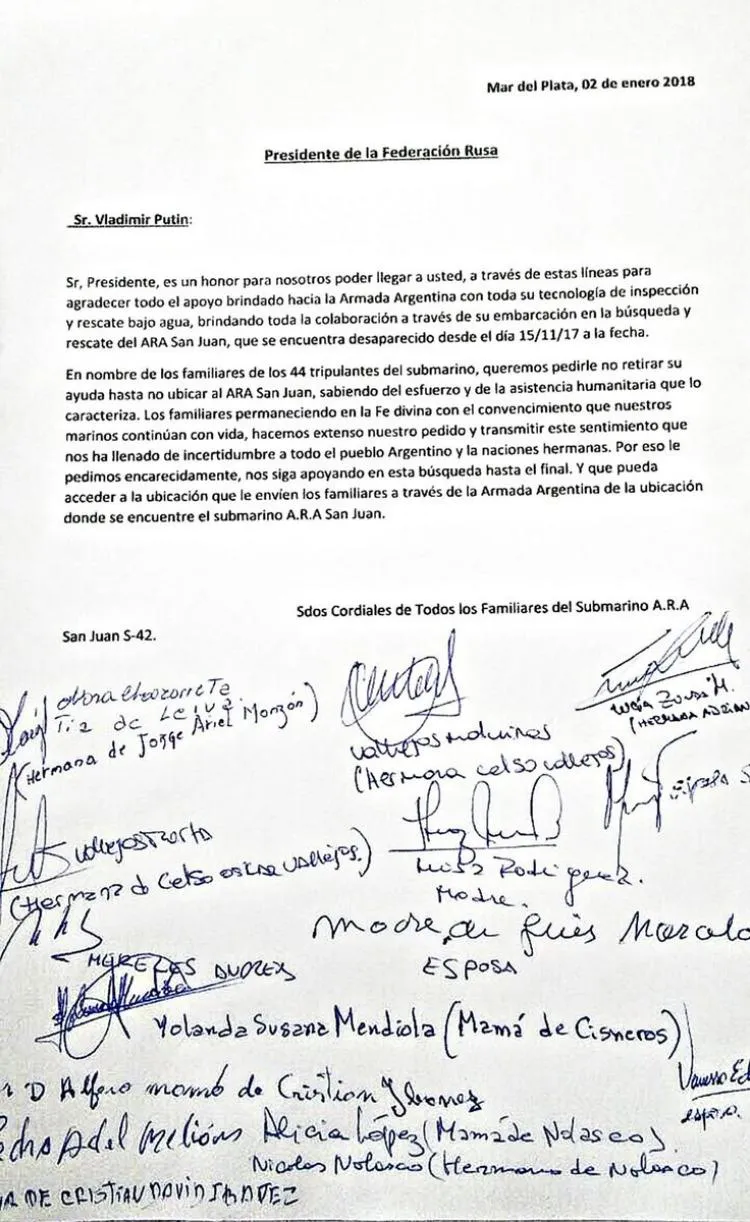 Mar del Plata, 02 de enero 2018
Presidente de la Federación Rusa
Sr. Vladimir Putin:
Sr, Presidente, es un honor para nosotros poder llegar a usted, a través de estas líneas para
agradecer todo el apoyo brindado hacia la Armada Argentina con toda su tecnología de inspección
y rescate bajo agua, brindando toda la colaboración a través de su embarcación en la búsqueda y
rescate del ARA San Juan, que se encuentra desaparecido desde el día 15/11/17 a la fecha.
En nombre de los familiares de los 44 tripulantes del submarino, queremos pedirle no retirar su
ayuda hasta no ubicar al ARA San Juan, sabiendo del esfuerzo y de la asistencia humanitaria que lo
caracteriza. Los familiares permaneciendo en la Fe divina con el convencimiento que nuestros
marinos continúan con vida, hacemos extenso nuestro pedido y transmitir este sentimiento que
nos ha llenado de incertidumbre a todo el pueblo Argentino y la naciones hermanas. Por eso le
pedimos encarecidamente, nos siga apoyando en esta búsqueda hasta el final. Y que pueda
acceder a la ubicación que le envíen los familiares a través de la Armada Argentina de la ubicación
donde se encuentre el submarino A.R.A San Juan.
Sdos Cordiales de Todos los Familiares del Submarino A.R.A
San Juan S-42.
Tia de Leiva
(Hermana de Jorge Ariel Monzón)
(Hermana Celso Vallejos)
(Hermana
Vallejos
(Hermana d Celso Vallejos.)
Luisa Rodriguez.
Madre.
Madre de
ESPOSA
Yolanda Susana Mendiola (Mamá de Cisneros)
D Alfaro mamá de Cristian Ibanez
Alicia López (Mamá de Nolasco).
Nicolas Nolasco (Hermano de Nolasco)
DE CRISTIAN DAVID